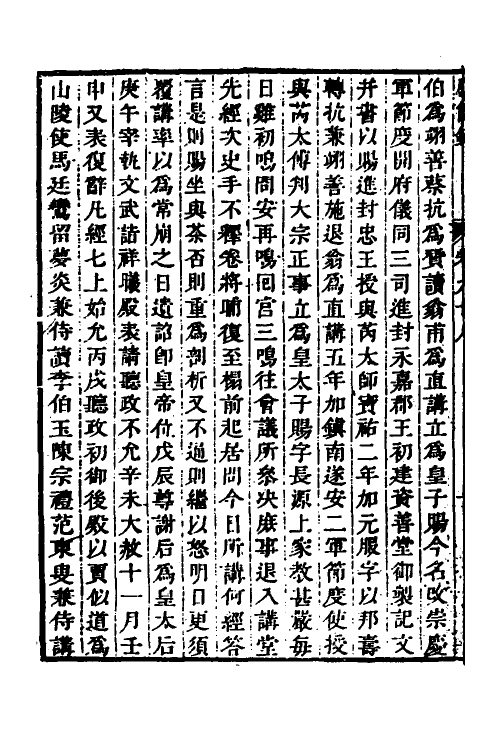 伯為翊善蔡抗為贊讀翁甫為直講立為皇子賜今名改崇慶
軍節度開府儀同三司進封永嘉郡王初建資善堂御製記文
并書以賜進封忠王授與芮太師寶祐二年加元服字以邦壽
轉抗兼翊善施退翁為直講五年加鎮南遂安二軍節度使授
與芮太傅判大宗正事立為皇太子賜字長源上家教甚嚴每
日雞初鳴問安再鳴回宮三鳴往會議所參决庶事退入講堂
先經次史手不釋卷將晡復至榻前起居問今日所講何經答
言是則賜坐與茶否則重為剖析又不通則繼以怒明日更須
覆講率以為常崩之日遺詔即皇帝位戊辰尊謝后為皇太后
庚午宰執文武詣祥曦殿表請聽政不允辛未大赦十一月壬
申又表復辭凡經七上始允丙戌聽政初御後殿以賈似道為
山陵使馬廷鸞留夢炎兼侍讀李伯玉陳宗禮范東叟兼侍講